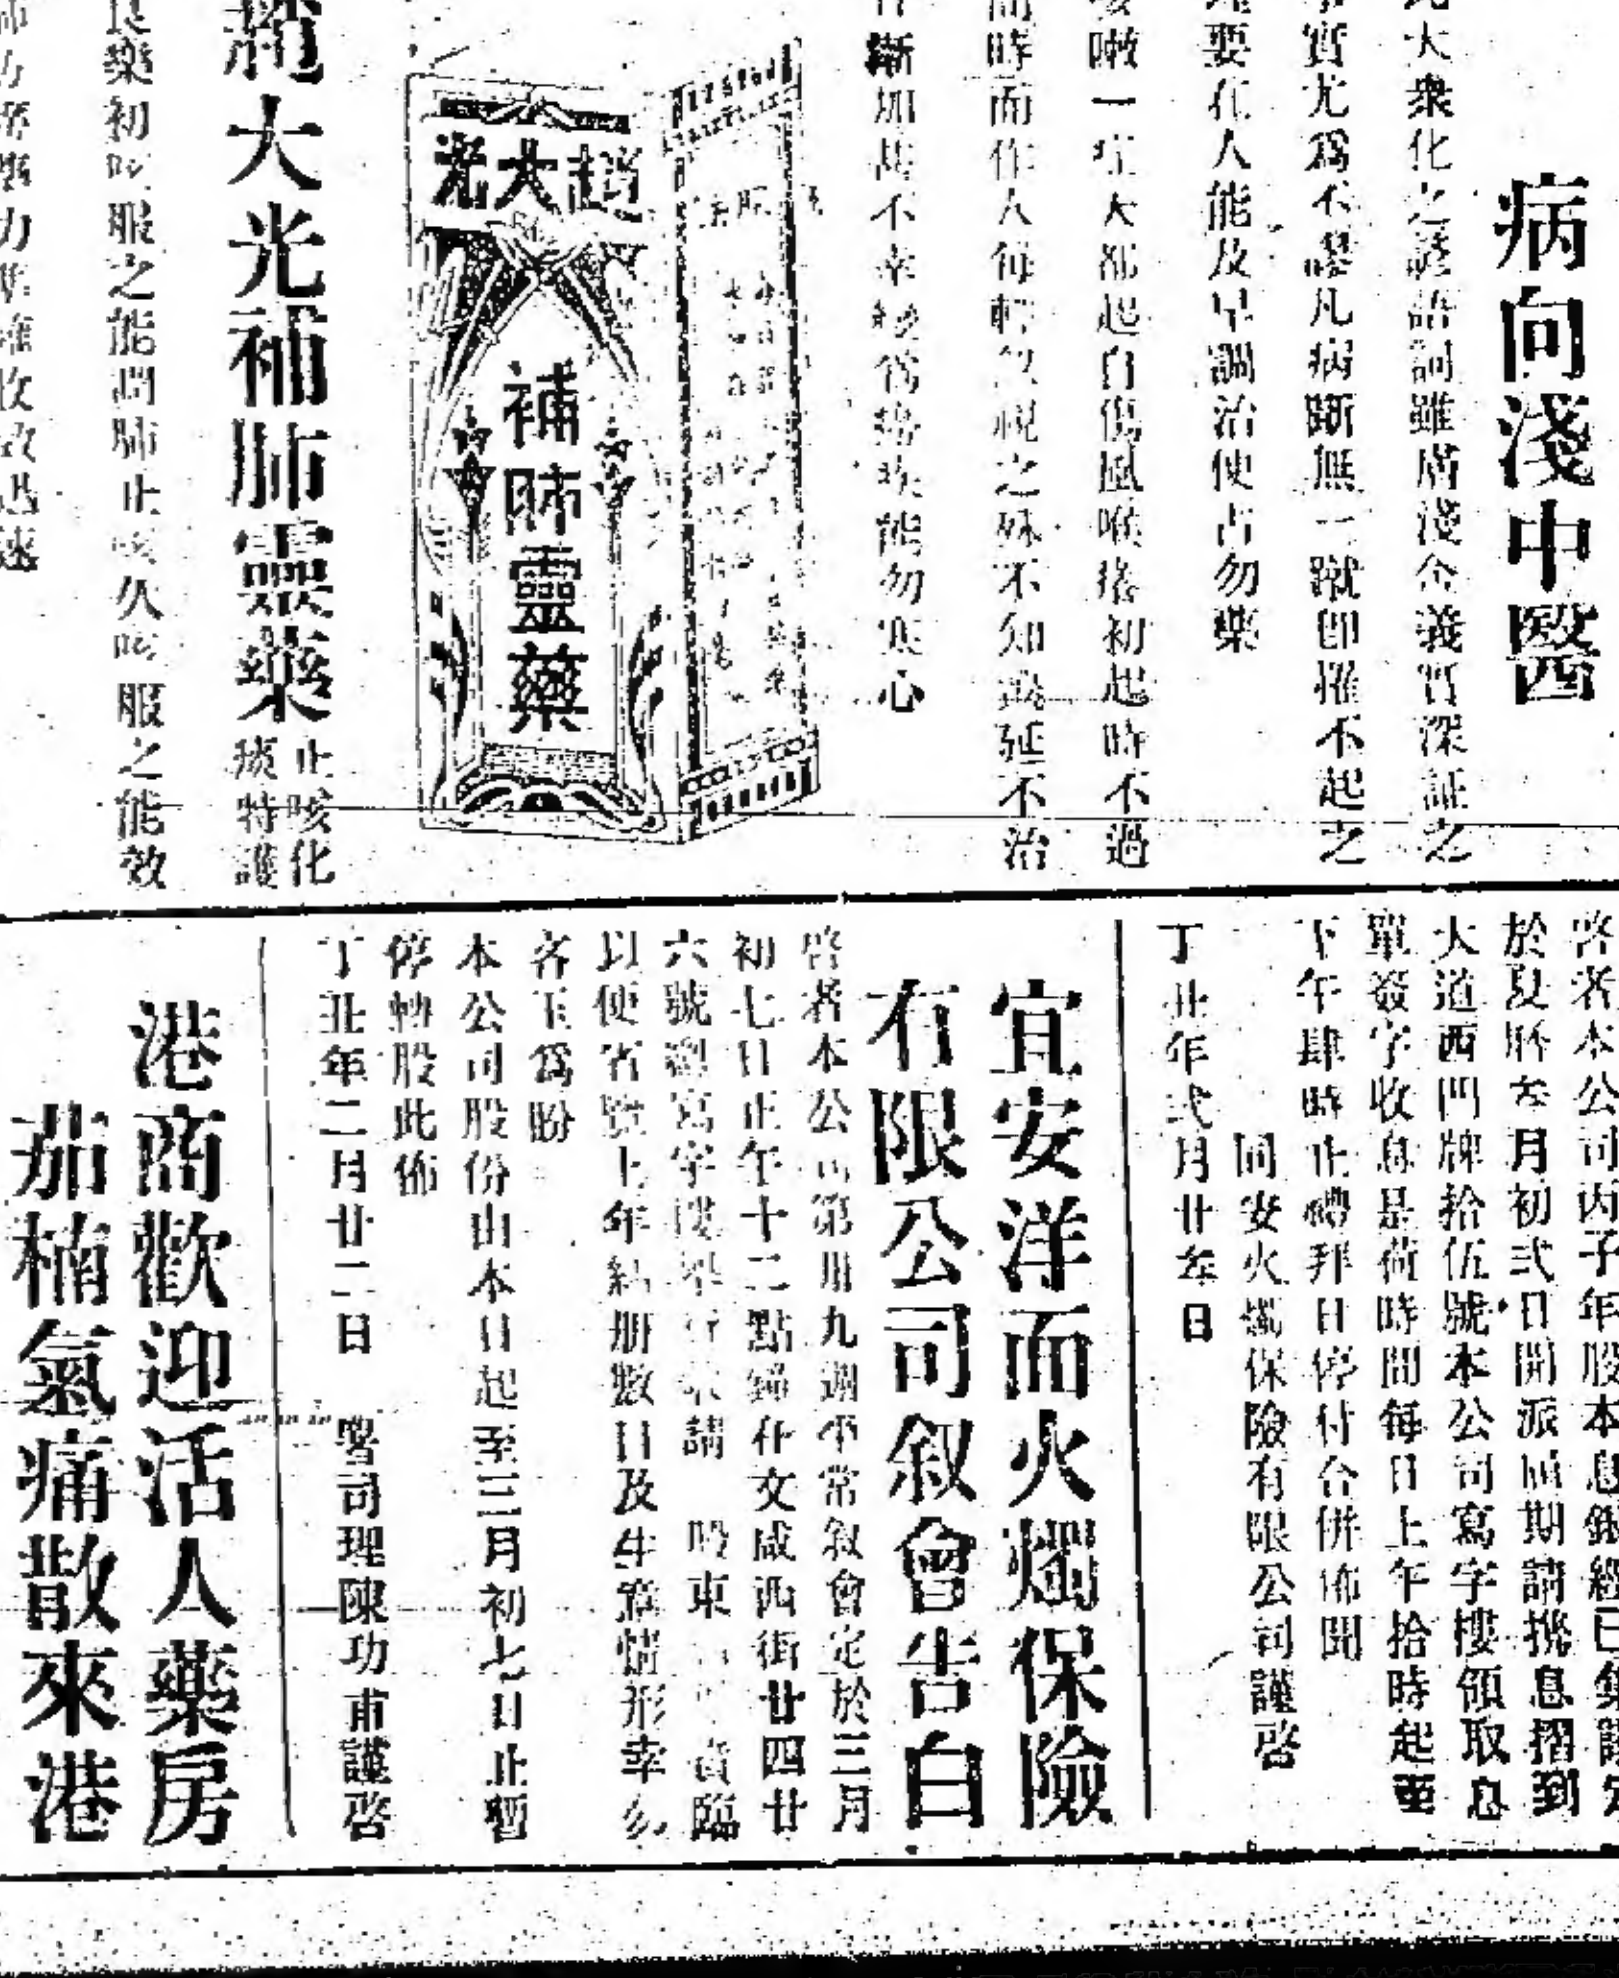 病向淺中醫
大衆化之諺語詞雖膚淺含義實深証之
事實尤爲不謬凡病斷無一蹴即摧不起之
要在人能及早調治使占勿藥
嗽一症大都起自傷風喉痒初起時不過
時而作人每輕忽視之殊不知遷延不治
漸加甚不幸變爲癆疾能勿寒心
趙大光
補肺靈藥
大光補肺靈藥
止咳化
痰特護
良藥初咳服之能潤肺止咳久咳服之能效
力準確收效迅速
啓者本公司丙子年股本息銀經已
於夏曆叁月初弍日開派屆期請携息摺到
大道西門牌拾伍號本公司寫字樓領取息
單簽字收息是荷時間每日上午拾時起至
下午肆時止禮拜日停付合併佈聞
同安火燭保險有限公司謹啓
丁丑年弍月廿叁日
宜安洋面火燭保險
有限公司叙會告白
啓者本公司第卅九週年常叙會定於三月
初七日正午十二點鐘在文咸西街廿四廿
六號寫字樓舉行敬請 股東 賁臨
以便省覽上年結册數目及生意情形幸勿
吝玉爲盼
本公司股份由本日起至三月初七日止暫
停轉股此佈
丁丑年二月廿二日 署司理陳功甫謹啓
港商歡迎活人藥房
茄楠氣痛散來港